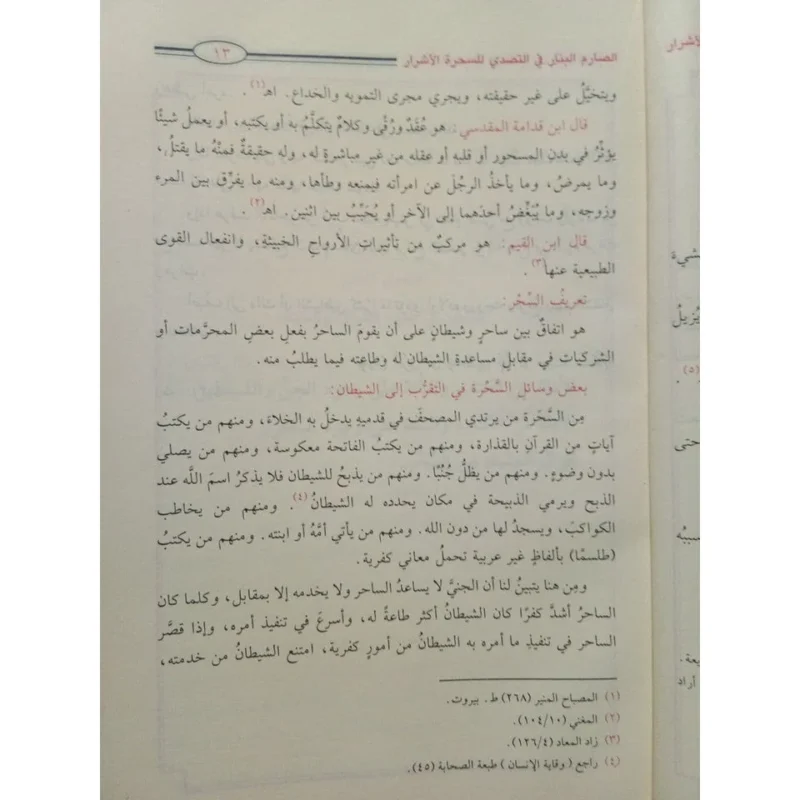 الصارم البتار في التصدي للسحرة الأشرار
١٣
ويتخيَّلُ على غير حقيقته، ويجري مجرى التمويه والخداع. اهـ(١).
قال ابن قدامة المقدسي: هو عُقَدٌ ورُقًى وكلامٌ يتكلَّمُ به أو يكتبه، أو يعملُ شيئًا
يؤثِّرُ في بدنِ المسحورِ أو قلبِه أو عقله من غير مباشرةٍ له، وله حقيقةٌ فمنْهُ ما يقتلُ،
وما يمرضُ، وما يأخذُ الرجُلَ عن امرأته فيمنعه وطأها، ومنه ما يفرِّق بين المرء
وزوجه، وما يُبَغِّضُ أحدَهما إلى الآخر أو يُحَبِّبُ بين اثنين. اهـ(٢).
قال ابن القيم: هو مركبٌ من تأثيراتِ الأرواحِ الخبيثةِ، وانفعال القوى
الطبيعية عنها(٣).
تعريفُ السِّحْر:
هو اتفاقٌ بين ساحرٍ وشيطانٍ على أن يقومَ الساحرُ بفعلِ بعضِ المحرَّمات أو
الشركيات في مقابلِ مساعدةِ الشيطان له وطاعته فيما يطلبُ منه.
بعض وسائلِ السَّحَرة في التقرُّب إلى الشيطان:
مِن السَّحَرة من يرتدي المصحفَ في قدميهِ يدخلُ به الخلاءَ، ومنهم من يكتبُ
آياتٍ من القرآنِ بالقذارة، ومنهم من يكتبُ الفاتحة معكوسة، ومنهم من يصلي
بدون وضوءٍ. ومنهم من يظلُّ جُنُبًا. ومنهم من يذبحُ للشيطان فلا يذكرُ اسمَ اللَّه عند
الذبح ويرمي الذبيحة في مكان يحدده له الشيطانُ(٤). ومنهم من يخاطب
الكواكبَ، ويسجدُ لها من دون الله. ومنهم من يأتي أمَّهُ أو ابنته. ومنهم من يكتبُ
(طلسمًا) بألفاظٍ غير عربية تحملُ معاني كفرية.
ومِن هنا يتبينُ لنا أن الجنيَّ لا يساعدُ الساحر ولا يخدمه إلا بمقابل، وكلما كان
الساحرُ أشدَّ كفرًا كان الشيطانُ أكثر طاعةً له، وأسرعَ في تنفيذِ أمره، وإذا قصَّر
الساحر في تنفيذِ ما أمره به الشيطانُ من أمورٍ كفرية، امتنع الشيطانُ من خدمته،
(١) المصباح المنير (٢٦٨) ط. بيروت.
(٢) المغني (١٠٤/١٠).
(٣) زاد المعاد (١٢٦/٤).
(٤) راجع (وقاية الإنسان) طبعة الصحابة (٤٥).
يُزيلُ
(٥).
حتى
أراد